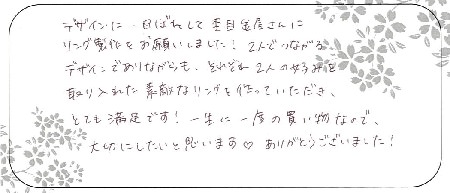 デザインに一目ぼれして杢目金屋さんに
リング製作をお願いしました！2人でつながる
デザインでありながらも、それぞれ2人の好みを
取り入れた素敵なリングを作っていただき、
とても満足です！一生に一度の買い物なので、
大切にしたいと思います♡ ありがとうございました！